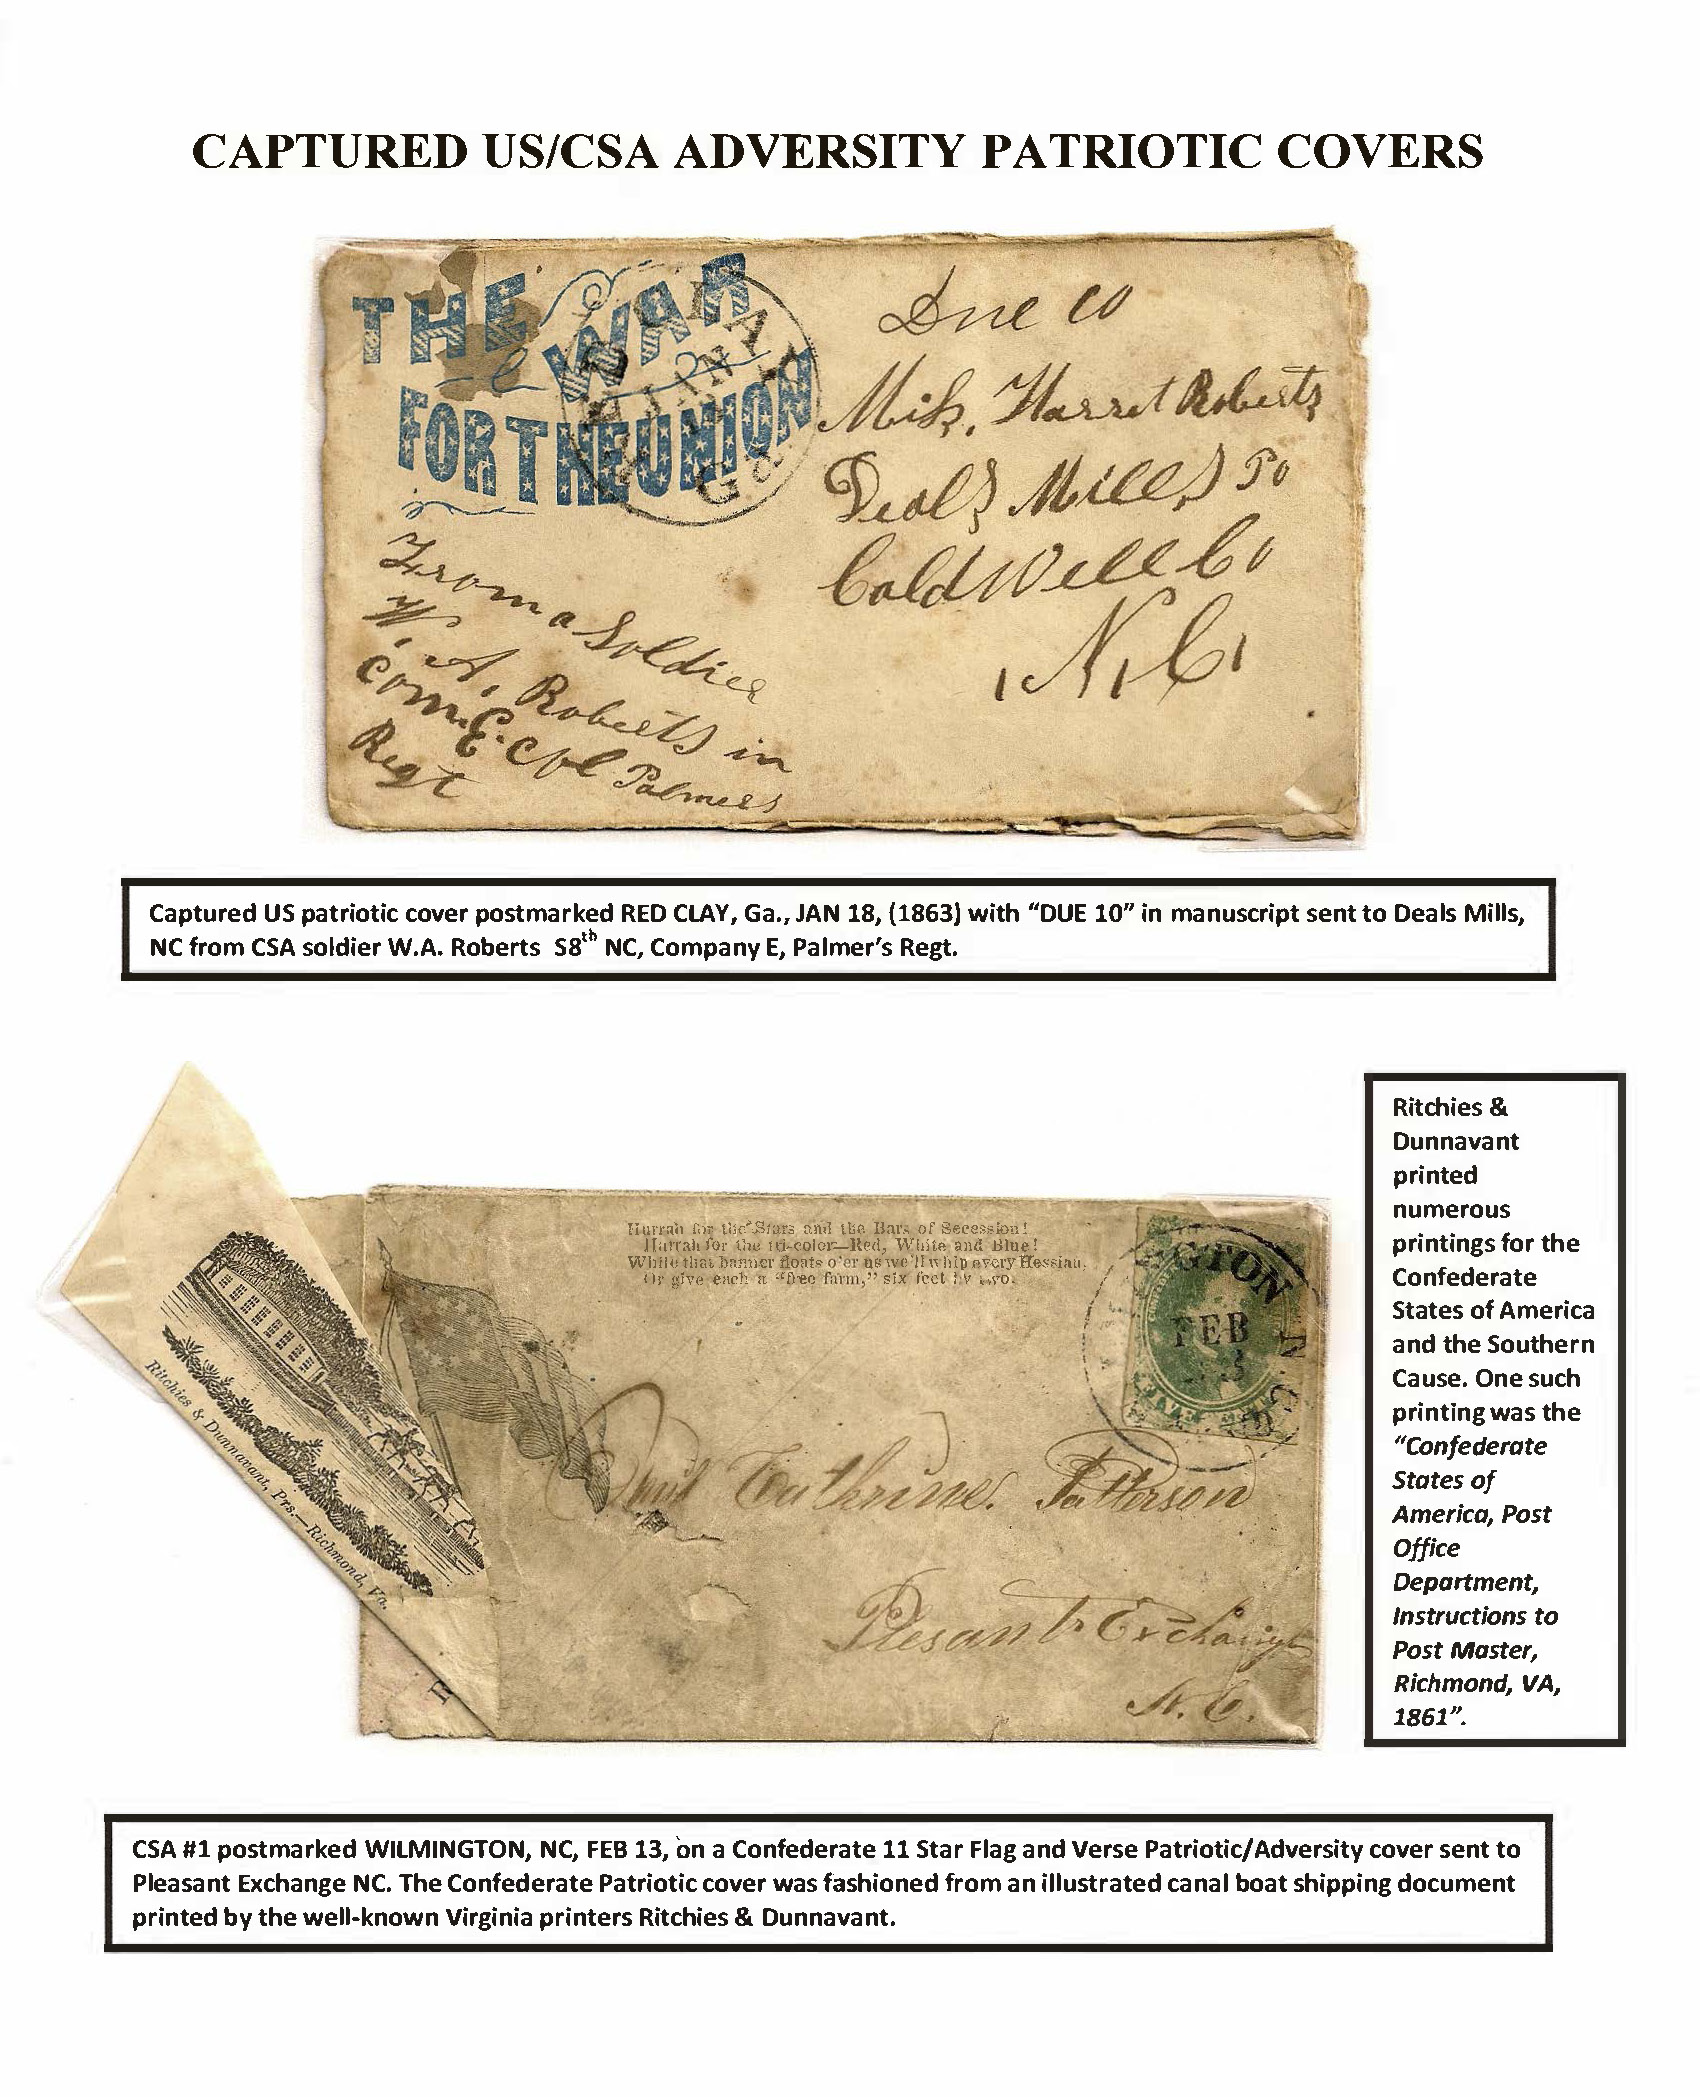 CAPTURED US/CSA ADVERSITY PATRIOTIC COVERS
THE WAR
FOR THE UNION
JAN
Ga
Due 10
Miss. Harret Roberts
Deals Mills Po
Caldwell Co
N. C.
From a Soldier
W. A. Roberts in
Com. E. Col Palmers
Regt
Captured US patriotic cover postmarked RED CLAY, Ga., JAN 18, (1863) with “DUE 10” in manuscript sent to Deals Mills,
NC from CSA soldier W.A. Roberts S8th NC, Company E, Palmer’s Regt.
Ritchies &
Dunnavant
printed
numerous
printings for the
Confederate
States of America
and the Southern
Cause. One such
printing was the
“Confederate
States of
America, Post
Office
Department,
Instructions to
Post Master,
Richmond, VA,
1861”.
Hurrah for the Stars and the Bars of Secession!
Hurrah for the tri-color—Red, White and Blue!
While that banner floats o'er us we'll whip every Hessian,
Or give each a “free farm,” six feet by two.
GTON
FEB
N. C.
Ritchies & Dunnavant, Prs.—Richmond, Va.
Miss Cathrine. Patterson
Plesant Exchange
N. C.
CSA #1 postmarked WILMINGTON, NC, FEB 13, on a Confederate 11 Star Flag and Verse Patriotic/Adversity cover sent to
Pleasant Exchange NC. The Confederate Patriotic cover was fashioned from an illustrated canal boat shipping document
printed by the well-known Virginia printers Ritchies & Dunnavant.